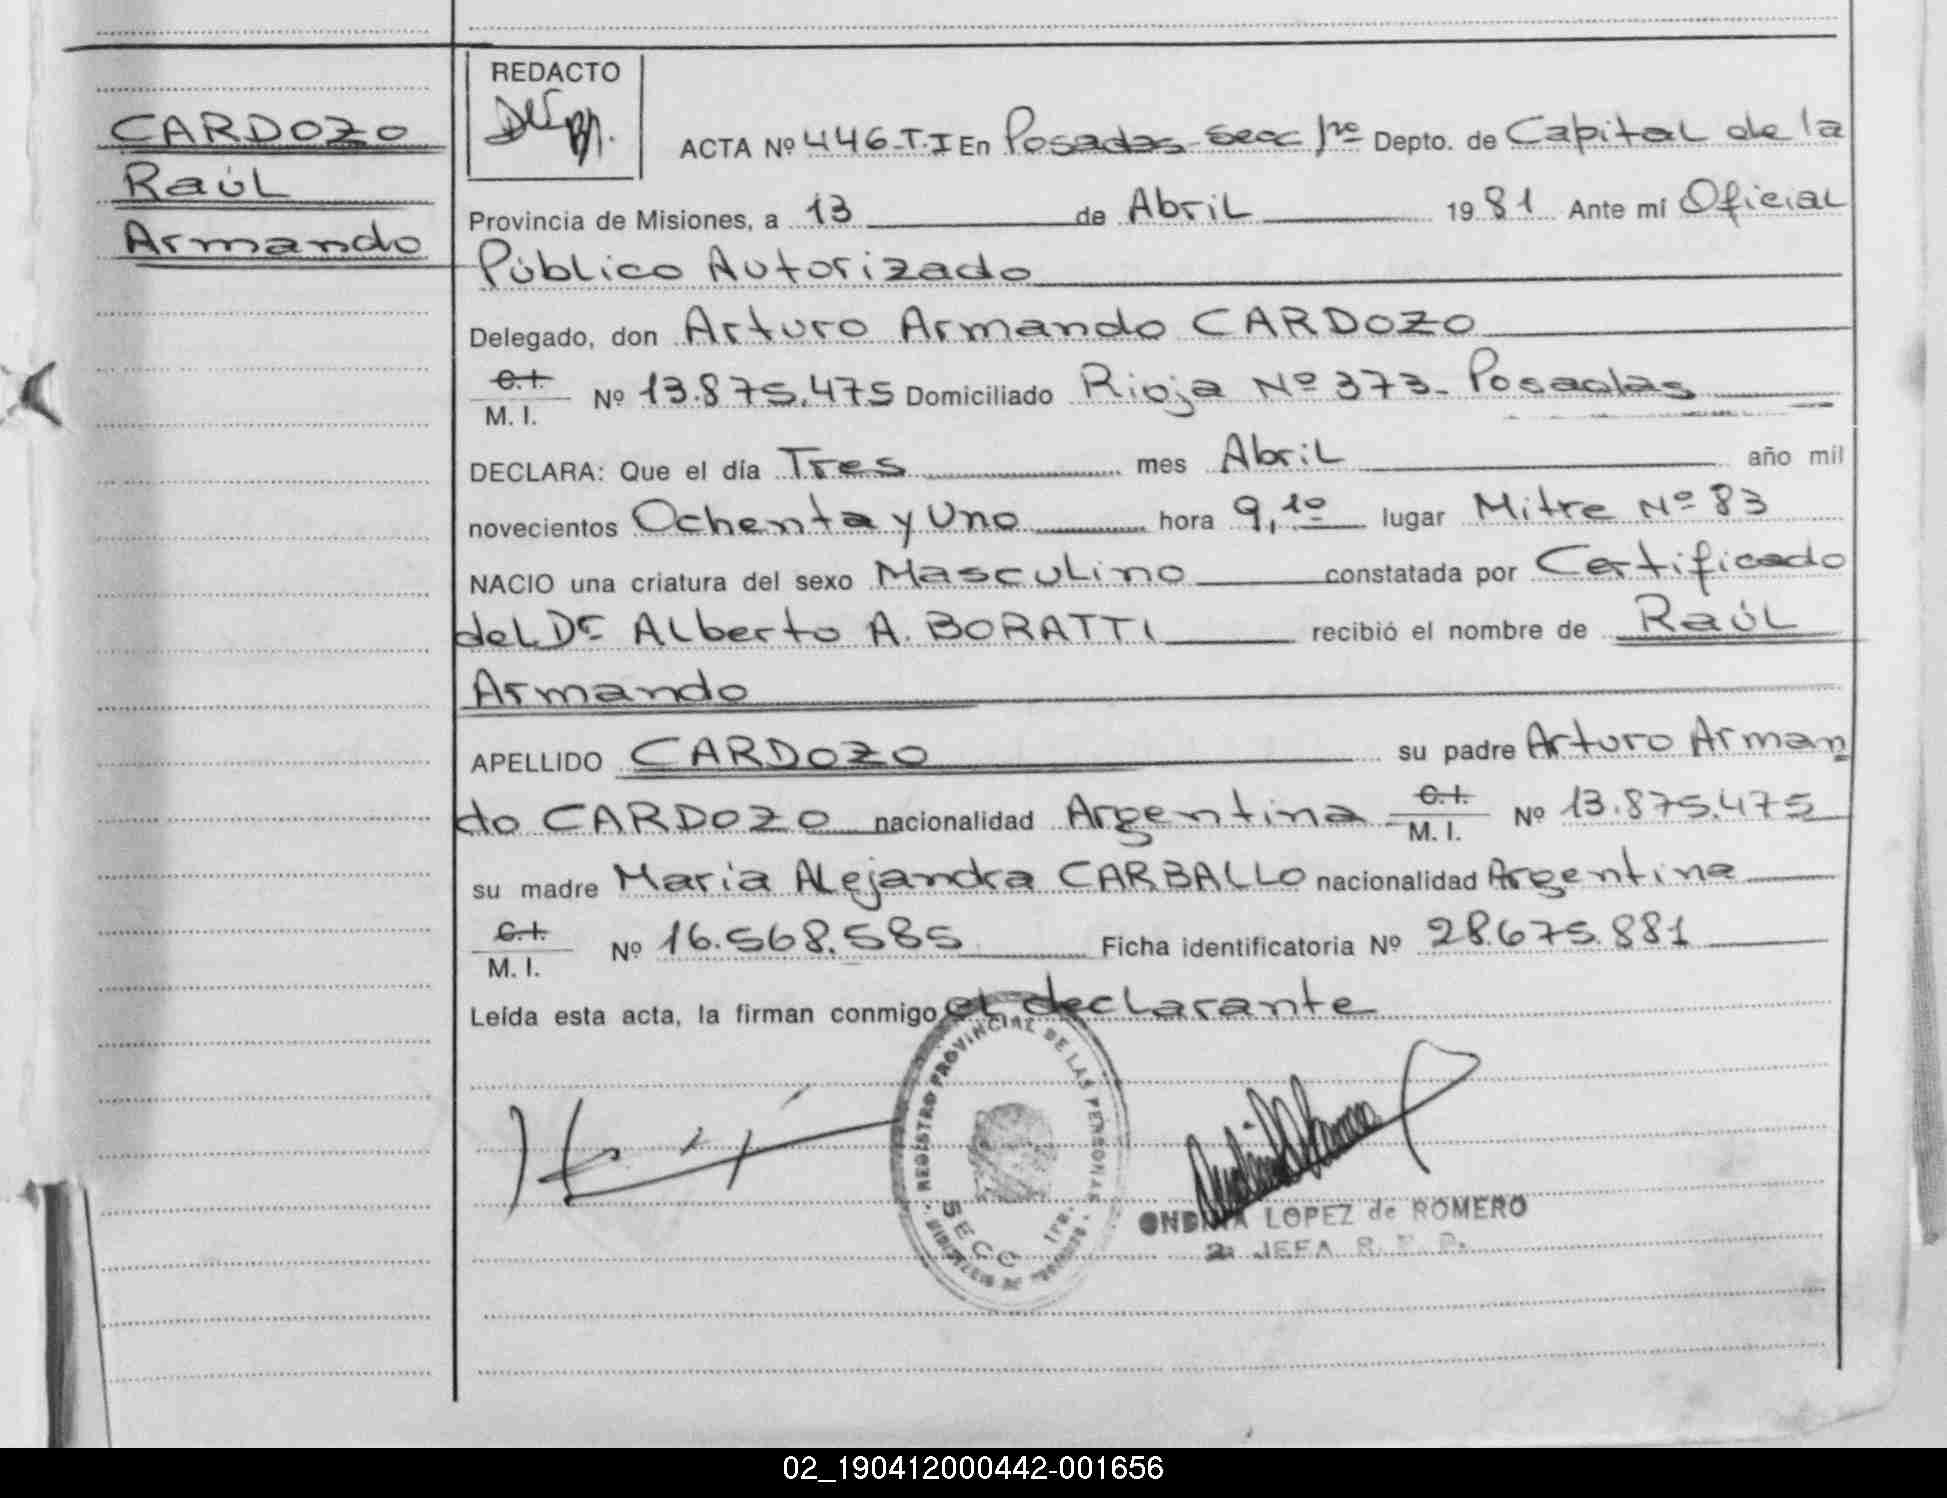 CARDOZO
Raúl
Armando
REDACTO
ACTA Nº 446-T.I En Posadas Secc 1ra Depto. de Capital de la
Provincia de Misiones, a 13 de Abril 1981 Ante mí Oficial
Público Autorizado
Delegado, don Arturo Armando CARDOZO
C.I.
M. I. Nº 13.875.475 Domiciliado Rioja Nº 373- Posadas
DECLARA: Que el día Tres mes Abril año mil
novecientos Ochenta y Uno hora 9,10 lugar Mitre Nº 83
NACIO una criatura del sexo Masculino constatada por Certificado
del Dr Alberto A. BORATTI recibió el nombre de Raúl
Armando
APELLIDO CARDOZO su padre Arturo Arman
do CARDOZO nacionalidad Argentina C.I. M. I. Nº 13.875.475
su madre Maria Alejandra CARBALLO nacionalidad Argentina
C.I.
M. I. Nº 16.568.585 Ficha identificatoria Nº 28.675.881
Leída esta acta, la firman conmigo el declarante
REGISTRO PROVINCIAL DE LAS PERSONAS
SECC 1ra.
LOPEZ de ROMERO
2a JEFA R. P. P.
02_190412000442-001656